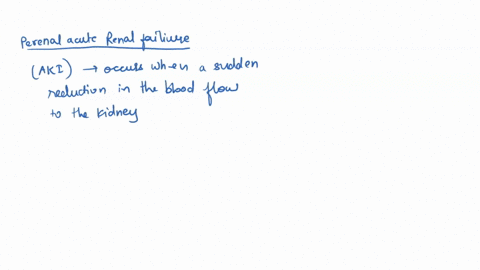 Perenal acute Renal failiure
(AKI) → occurs when a sudden
reduction in the blood flow
to the kidney